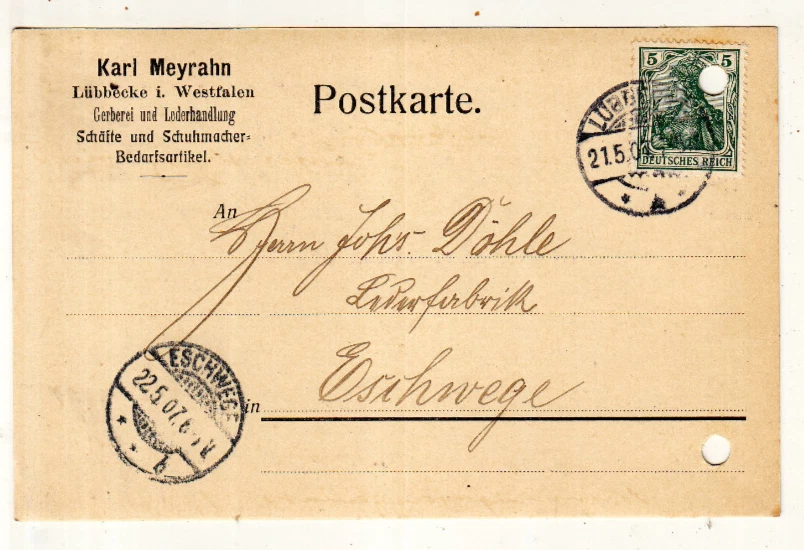 Karl Meyrahn
Lübbecke i. Westfalen
Gerberei und Lederhandlung
Schäfte und Schuhmacher-
Bedarfsartikel.
Postkarte.
5 5
DEUTSCHES REICH
21.5.0
An
Herrn Johs. Döhle
Lederfabrik
Eschwege
in
ESCHWEGE
22.5.07.6-7 N
b